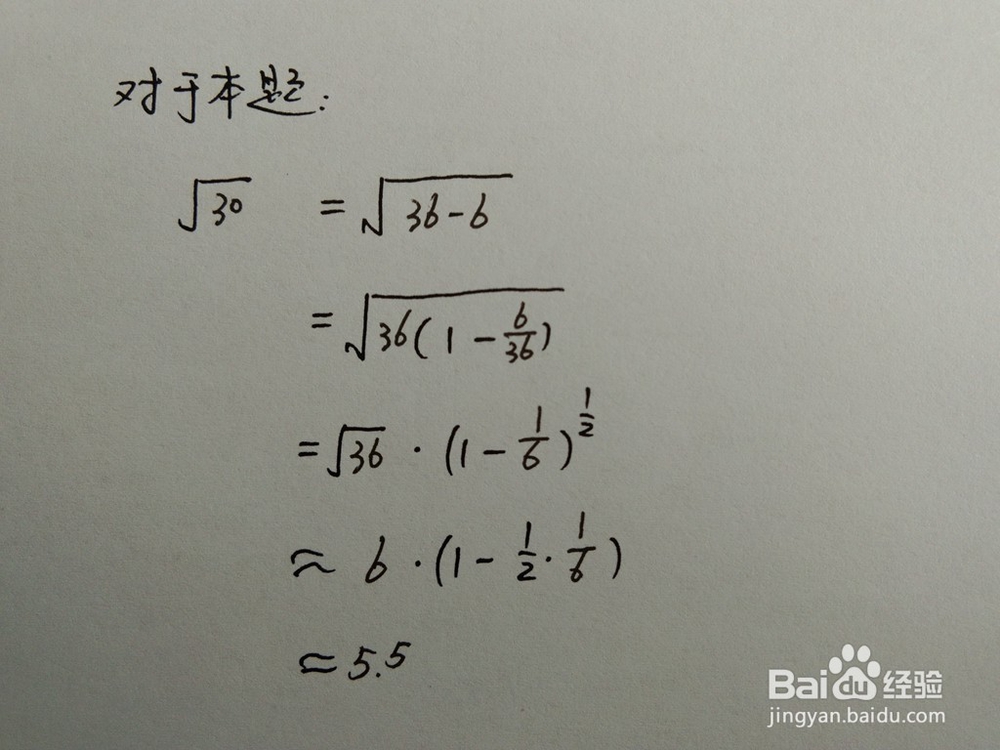 对于本题:
√30 = √(36-6)
= √(36(1-6/36))
= √36 · (1-1/6)^(1/2)
≈ 6 · (1-1/2·1/6)
≈ 5.5
Baidu经验
jingyan.baidu.com